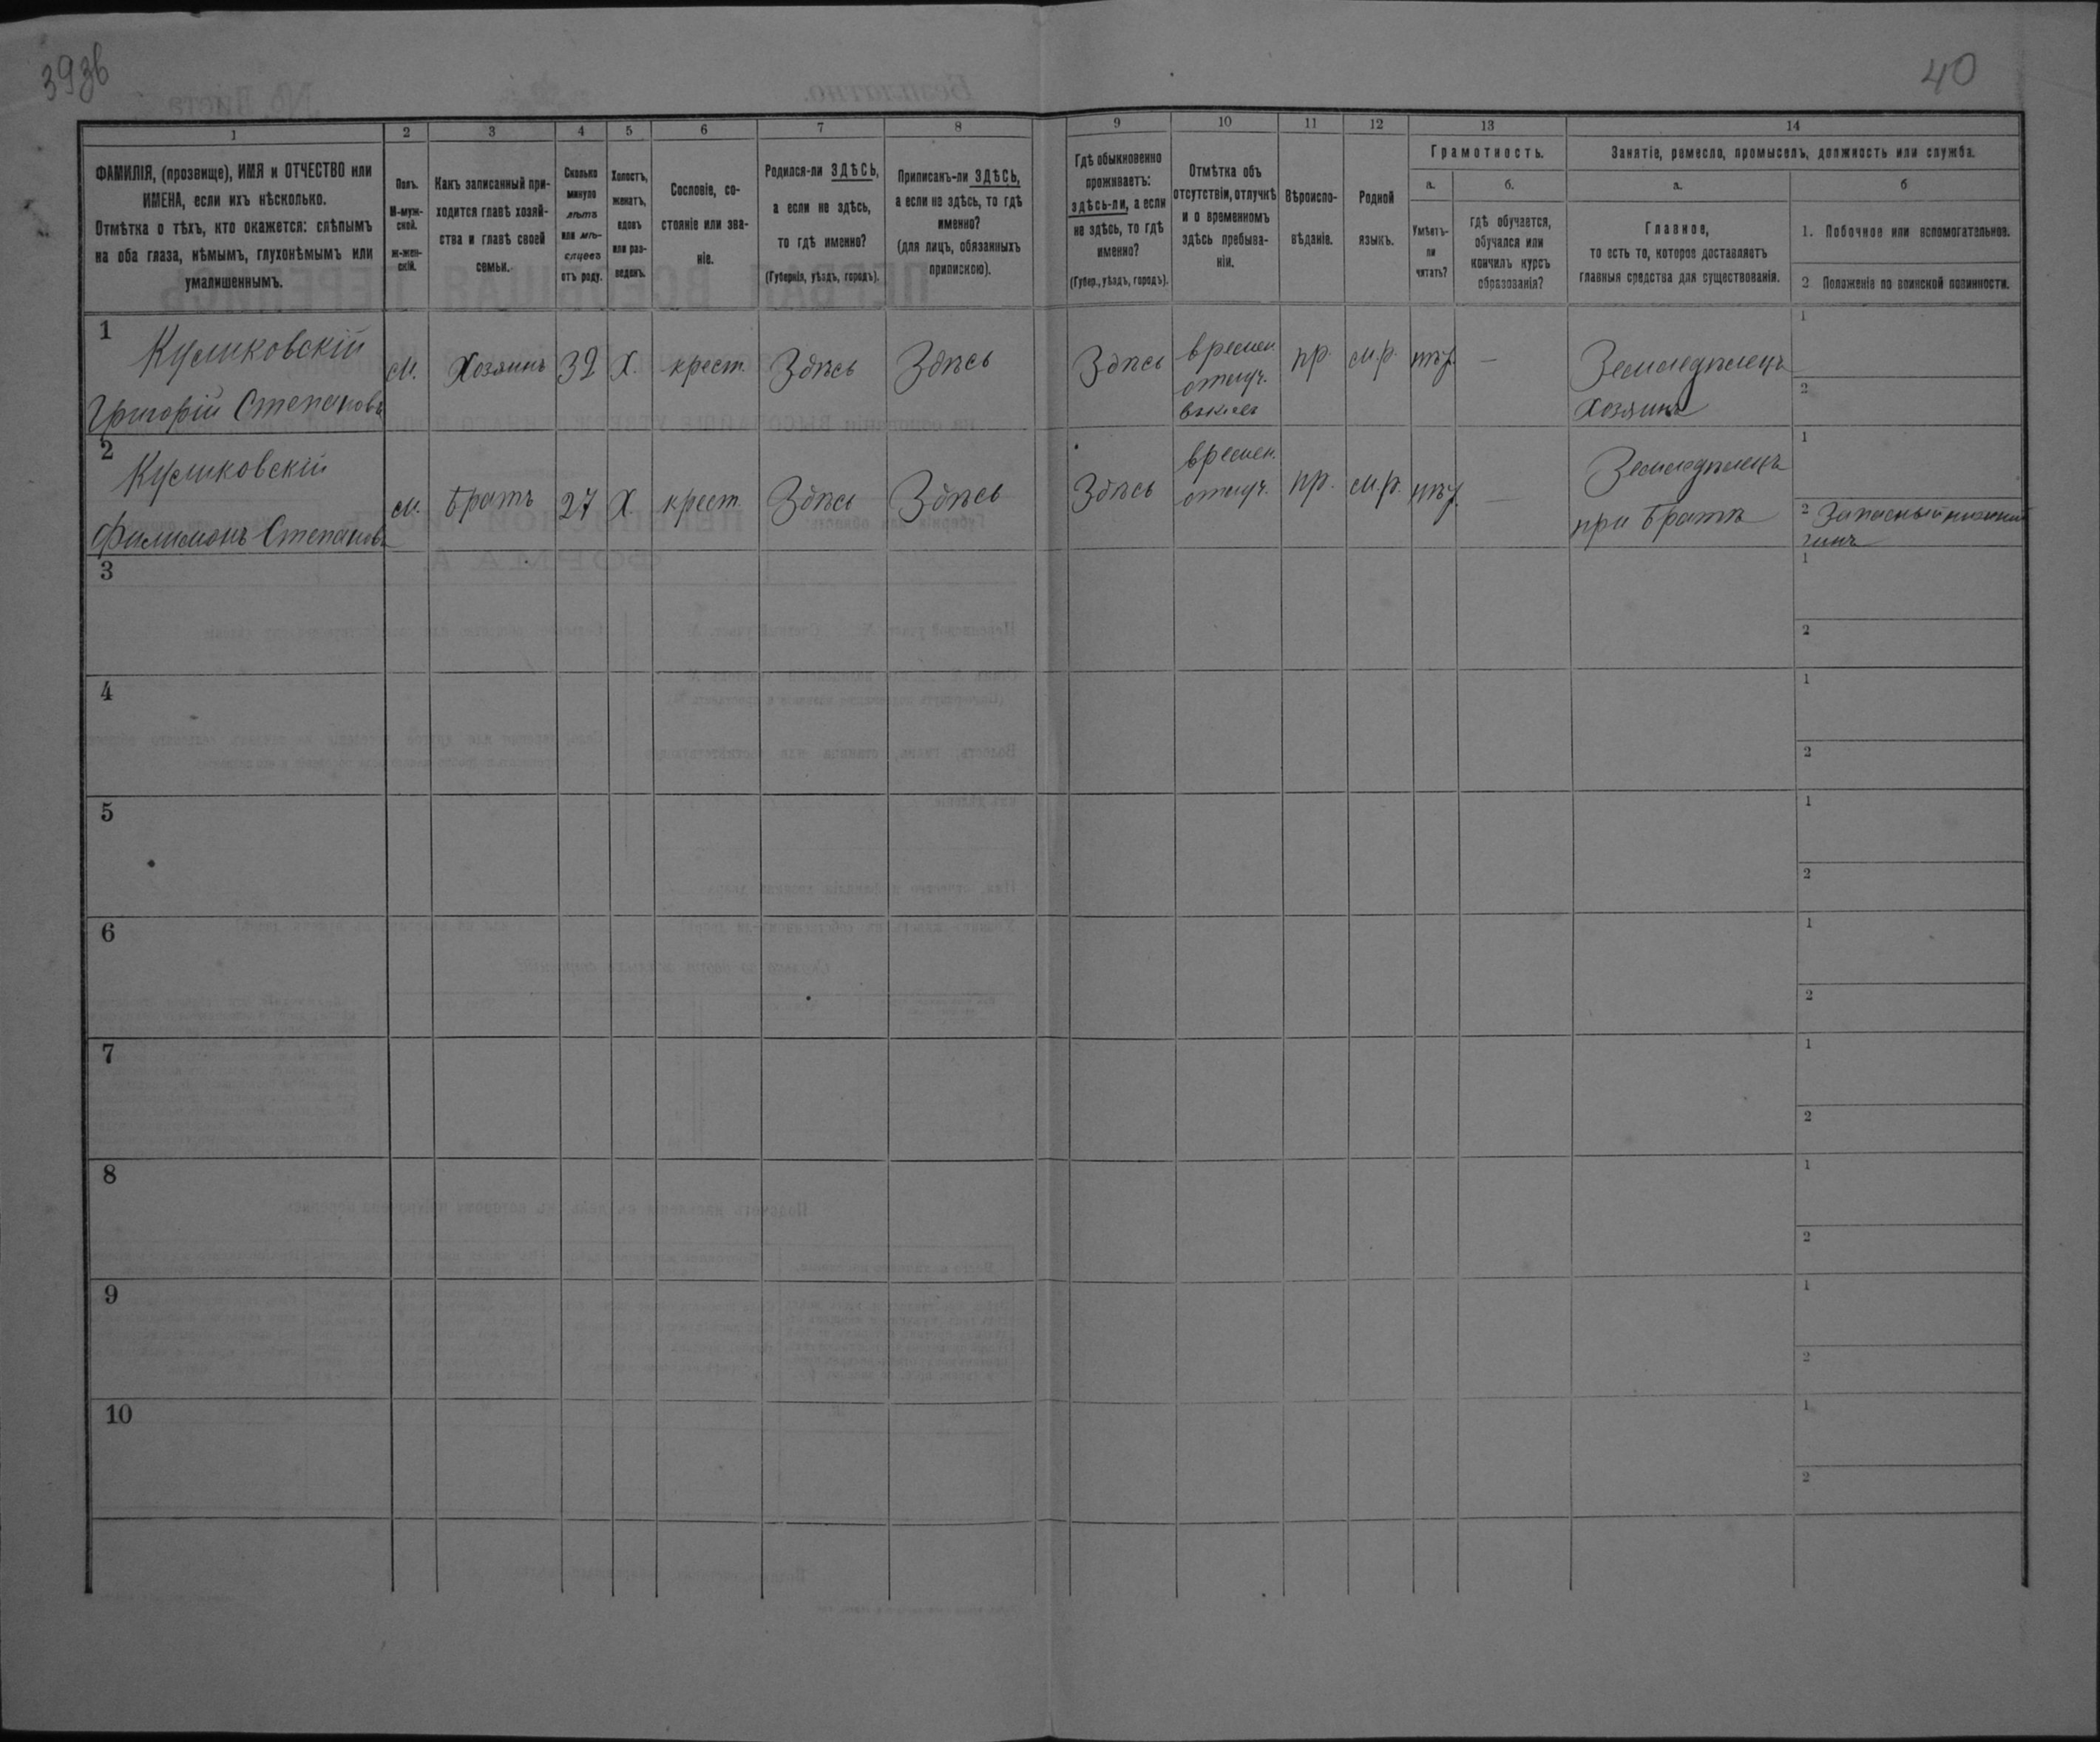 39зв
40
1 2 3 4 5 6 7 8 9 10 11 12 13 14
ФАМИЛІЯ, (прозвище), ИМЯ и ОТЧЕСТВО или
ИМЕНА, если ихъ нѣсколько.
Отмѣтка о тѣхъ, кто окажется: слѣпымъ
на оба глаза, нѣмымъ, глухонѣмымъ или
умалишеннымъ.
Полъ.
М-муж-
ской.
ж-жен-
скій.
Какъ записанный при-
ходится главѣ хозяй-
ства и главѣ своей
семьи.
Сколько
минуло
лѣтъ
или мѣ-
сяцевъ
отъ роду.
Холостъ,
женатъ,
вдовъ
или раз-
веденъ.
Сословіе, со-
стояніе или зва-
ніе.
Родился-ли ЗДѢСЬ,
а если не здѣсь,
то гдѣ именно?
(Губернія, уѣздъ, городъ).
Приписанъ-ли ЗДѢСЬ,
а если не здѣсь, то гдѣ
именно?
(для лицъ, обязанныхъ
припискою).
Гдѣ обыкновенно
проживаетъ:
здѣсь-ли, а если
не здѣсь, то гдѣ
именно?
(Губер., уѣздъ, городъ).
Отмѣтка объ
отсутствіи, отлучкѣ
и о временномъ
здѣсь пребыва-
ніи.
Вѣроиспо-
вѣданіе.
Родной
языкъ.
Грамотность.
а.
Умѣетъ-
ли
читать?
б.
гдѣ обучается,
обучался или
кончилъ курсъ
образованія?
Занятіе, ремесло, промыселъ, должность или служба.
а.
Главное,
то есть то, которое доставляетъ
главныя средства для существованія.
б
1. Побочное или вспомогательное.
2 Положеніе по воинской повинности.
1
Куликовскій
Григорій Степановъ
м.
Хозяинъ
32
Х.
крест.
Здѣсь
Здѣсь
Здѣсь
времен.
отлуч.
пр.
м.р.
нѣт
—
Земледѣлецъ
Хозяинъ
1
2
2
Куликовскій
Филимонъ Степановъ
м.
братъ
27
Х.
крест.
Здѣсь
Здѣсь
Здѣсь
времен.
отлуч.
пр.
м.р.
нѣт
—
Земледѣлецъ
при братѣ
1
2 Запасный нижній
чинъ
3
1
2
4
1
2
5
1
2
6
1
2
7
1
2
8
1
2
9
1
2
10
1
2